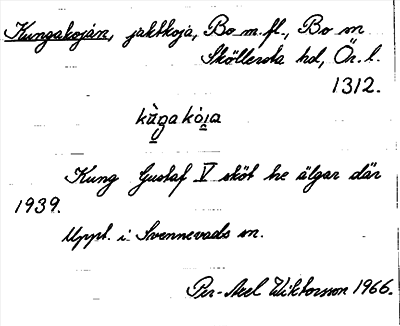 Kungakojan, jaktkoja, Bo m.fl., Bo sn
Sköllersta hd, Ör. l.
1312.
Kung Gustaf V sköt tre älgar där
1939.
Uppt. i Svennevads sn.
Per-Axel Wiktorsson 1966.